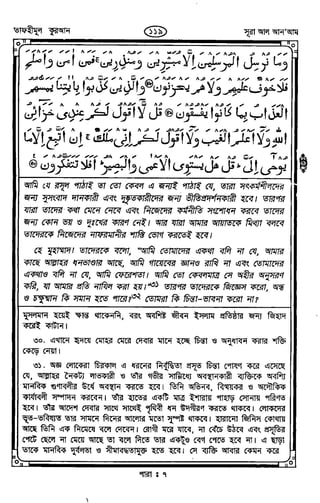 তাফহীমুল কুরআন
১১৯
সূরা আল আন'আম
وَمَا نُرْسِلُ الْمُرْسَلِينَ إِلَّا مُبَشِّرِينَ وَمُنْذِرِينَ ۚ فَمَنْ آمَنَ وَأَصْلَحَ
فَلَا خَوْفٌ عَلَيْهِمْ وَلَا هُمْ يَحْزَنُونَ ۝ وَالَّذِينَ كَذَّبُوا بِآيَاتِنَا يَمَسُّهُمُ
الْعَذَابُ بِمَا كَانُوا يَفْسُقُونَ ۝ قُلْ لَا أَقُولُ لَكُمْ عِنْدِي خَزَائِنُ
اللَّهِ وَلَا أَعْلَمُ الْغَيْبَ وَلَا أَقُولُ لَكُمْ إِنِّي مَلَكٌ ۚ إِنْ أَتَّبِعُ إِلَّا مَا
يُوحَىٰ إِلَيَّ ۚ قُلْ هَلْ يَسْتَوِي الْأَعْمَىٰ وَالْبَصِيرُ ۚ أَفَلَا تَتَفَكَّرُونَ ۝
আমি যে রসূল পাঠাই তা তো কেবল এ জন্যই পাঠাই যে, তারা সৎকর্মশীলদের
জন্য সুসংবাদ দানকারী এবং দুষ্কৃতকারীদের জন্য ভীতিপ্রদর্শনকারী হবে। তারপর
যারা তাদের কথা মেনে নেবে এবং নিজেদের কর্মনীতি সংশোধন করবে তাদের
জন্য কোন ভয় ও দুঃখের কারণ নেই। আর যারা আমার আয়াতকে মিথ্যা বলবে
তাদেরকে নিজেদের নাফরমানীর শাস্তি ভোগ করতেই হবে।
হে মুহাম্মাদ! তাদেরকে বলো, "আমি তোমাদের একথা বলি না যে, আমার
কাছে আল্লাহর ধনভাণ্ডার আছে, আমি গায়েবের জ্ঞানও রাখি না এবং তোমাদের
একথাও বলি না যে, আমি ফেরেশতা। আমি তো কেবলমাত্র সে অহীর অনুসরণ
করি, যা আমার প্রতি নাযিল করা হয়। তারপর তাদেরকে জিজ্ঞেস করো, অন্ধ
ও চক্ষুষ্মান কি সমান হতে পারে? তোমরা কি চিন্তা-ভাবনা করো না?
মুসলমান হয়েই ক্ষান্ত থাকেননি, বরং অবশিষ্ট জীবন ইসলাম প্রতিষ্ঠার জন্য জিহাদ
করেই কাটান।
৩০. এখানে হৃদয়ে মোহর মেরে দেবার মানে হচ্ছে চিন্তা ও অনুধাবন করার শক্তি
কেড়ে নেয়া।
৩১. অজ্ঞ লোকেরা চিরকাল এ ধরনের নির্বুদ্ধিতা প্রসূত চিন্তা পোষণ করে এসেছে
যে, আল্লাহর নৈকট্য লাভকারী ও তাঁর গভীর সান্নিধ্যে অবস্থানকারী ব্যক্তিকে অবশ্যি
মানবিক গুণাবলীর উর্ধে অবস্থান করতে হবে। তিনি অভিনব, বিস্ময়কর ও অলৌকিক
কার্যাবলী সম্পাদন করবেন। তাঁর হাতের একটি মাত্র ইশারায় পাহাড় সোনায় পরিণত
হবে। তাঁর আদেশ দেবার সাথে সাথেই পৃথিবী ধন উদগীরণ করতে থাকবে। লোকদের
ভূত-ভবিষ্যত তার সামনে দিনের আলোর মতো সুস্পষ্ট থাকবে। হারানো জিনিস কোথায়
আছে তিনি এক নিমেষে বলে দেবেন। রোগী মরে যাবে, না বেঁচে উঠবে এবং প্রসূতির
পেটে ছেলে না মেয়ে আছে তা বলে দিতে তার একটুও বেগ পেতে হবে না। এ ছাড়া
তাকে মানবিক দুর্বলতা ও সীমাবদ্ধতামুক্ত হতে হবে। সে ব্যক্তি আবার কেমন করে
পারা : ৭